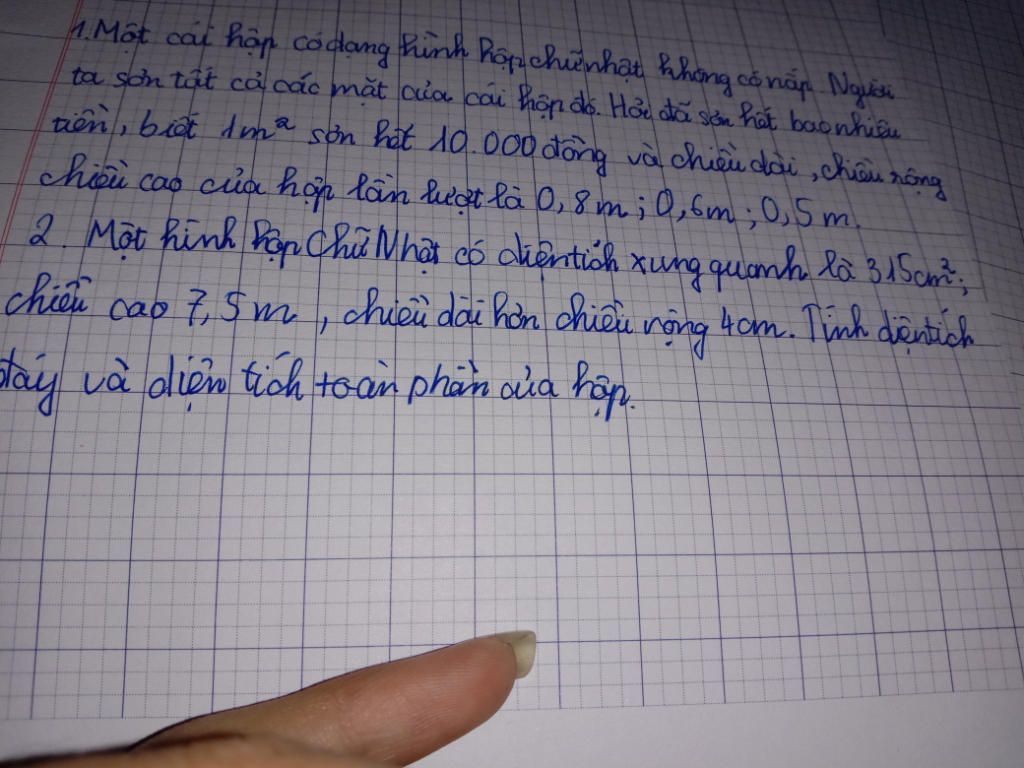 1. Một cái hộp có dạng hình hộp chữ nhật không có nắp. Người
ta sơn tất cả các mặt của cái hộp đó. Hỏi đã sơn hết bao nhiêu
tiền, biết 1m² sơn hết 10.000 đồng và chiều dài, chiều rộng
chiều cao của hộp lần lượt là 0,8m; 0,6m; 0,5m.
2. Một hình hộp Chữ Nhật có diện tích xung quanh là 315cm²;
chiều cao 7,5m, chiều dài hơn chiều rộng 4cm. Tính diện tích
đáy và diện tích toàn phần của hộp.